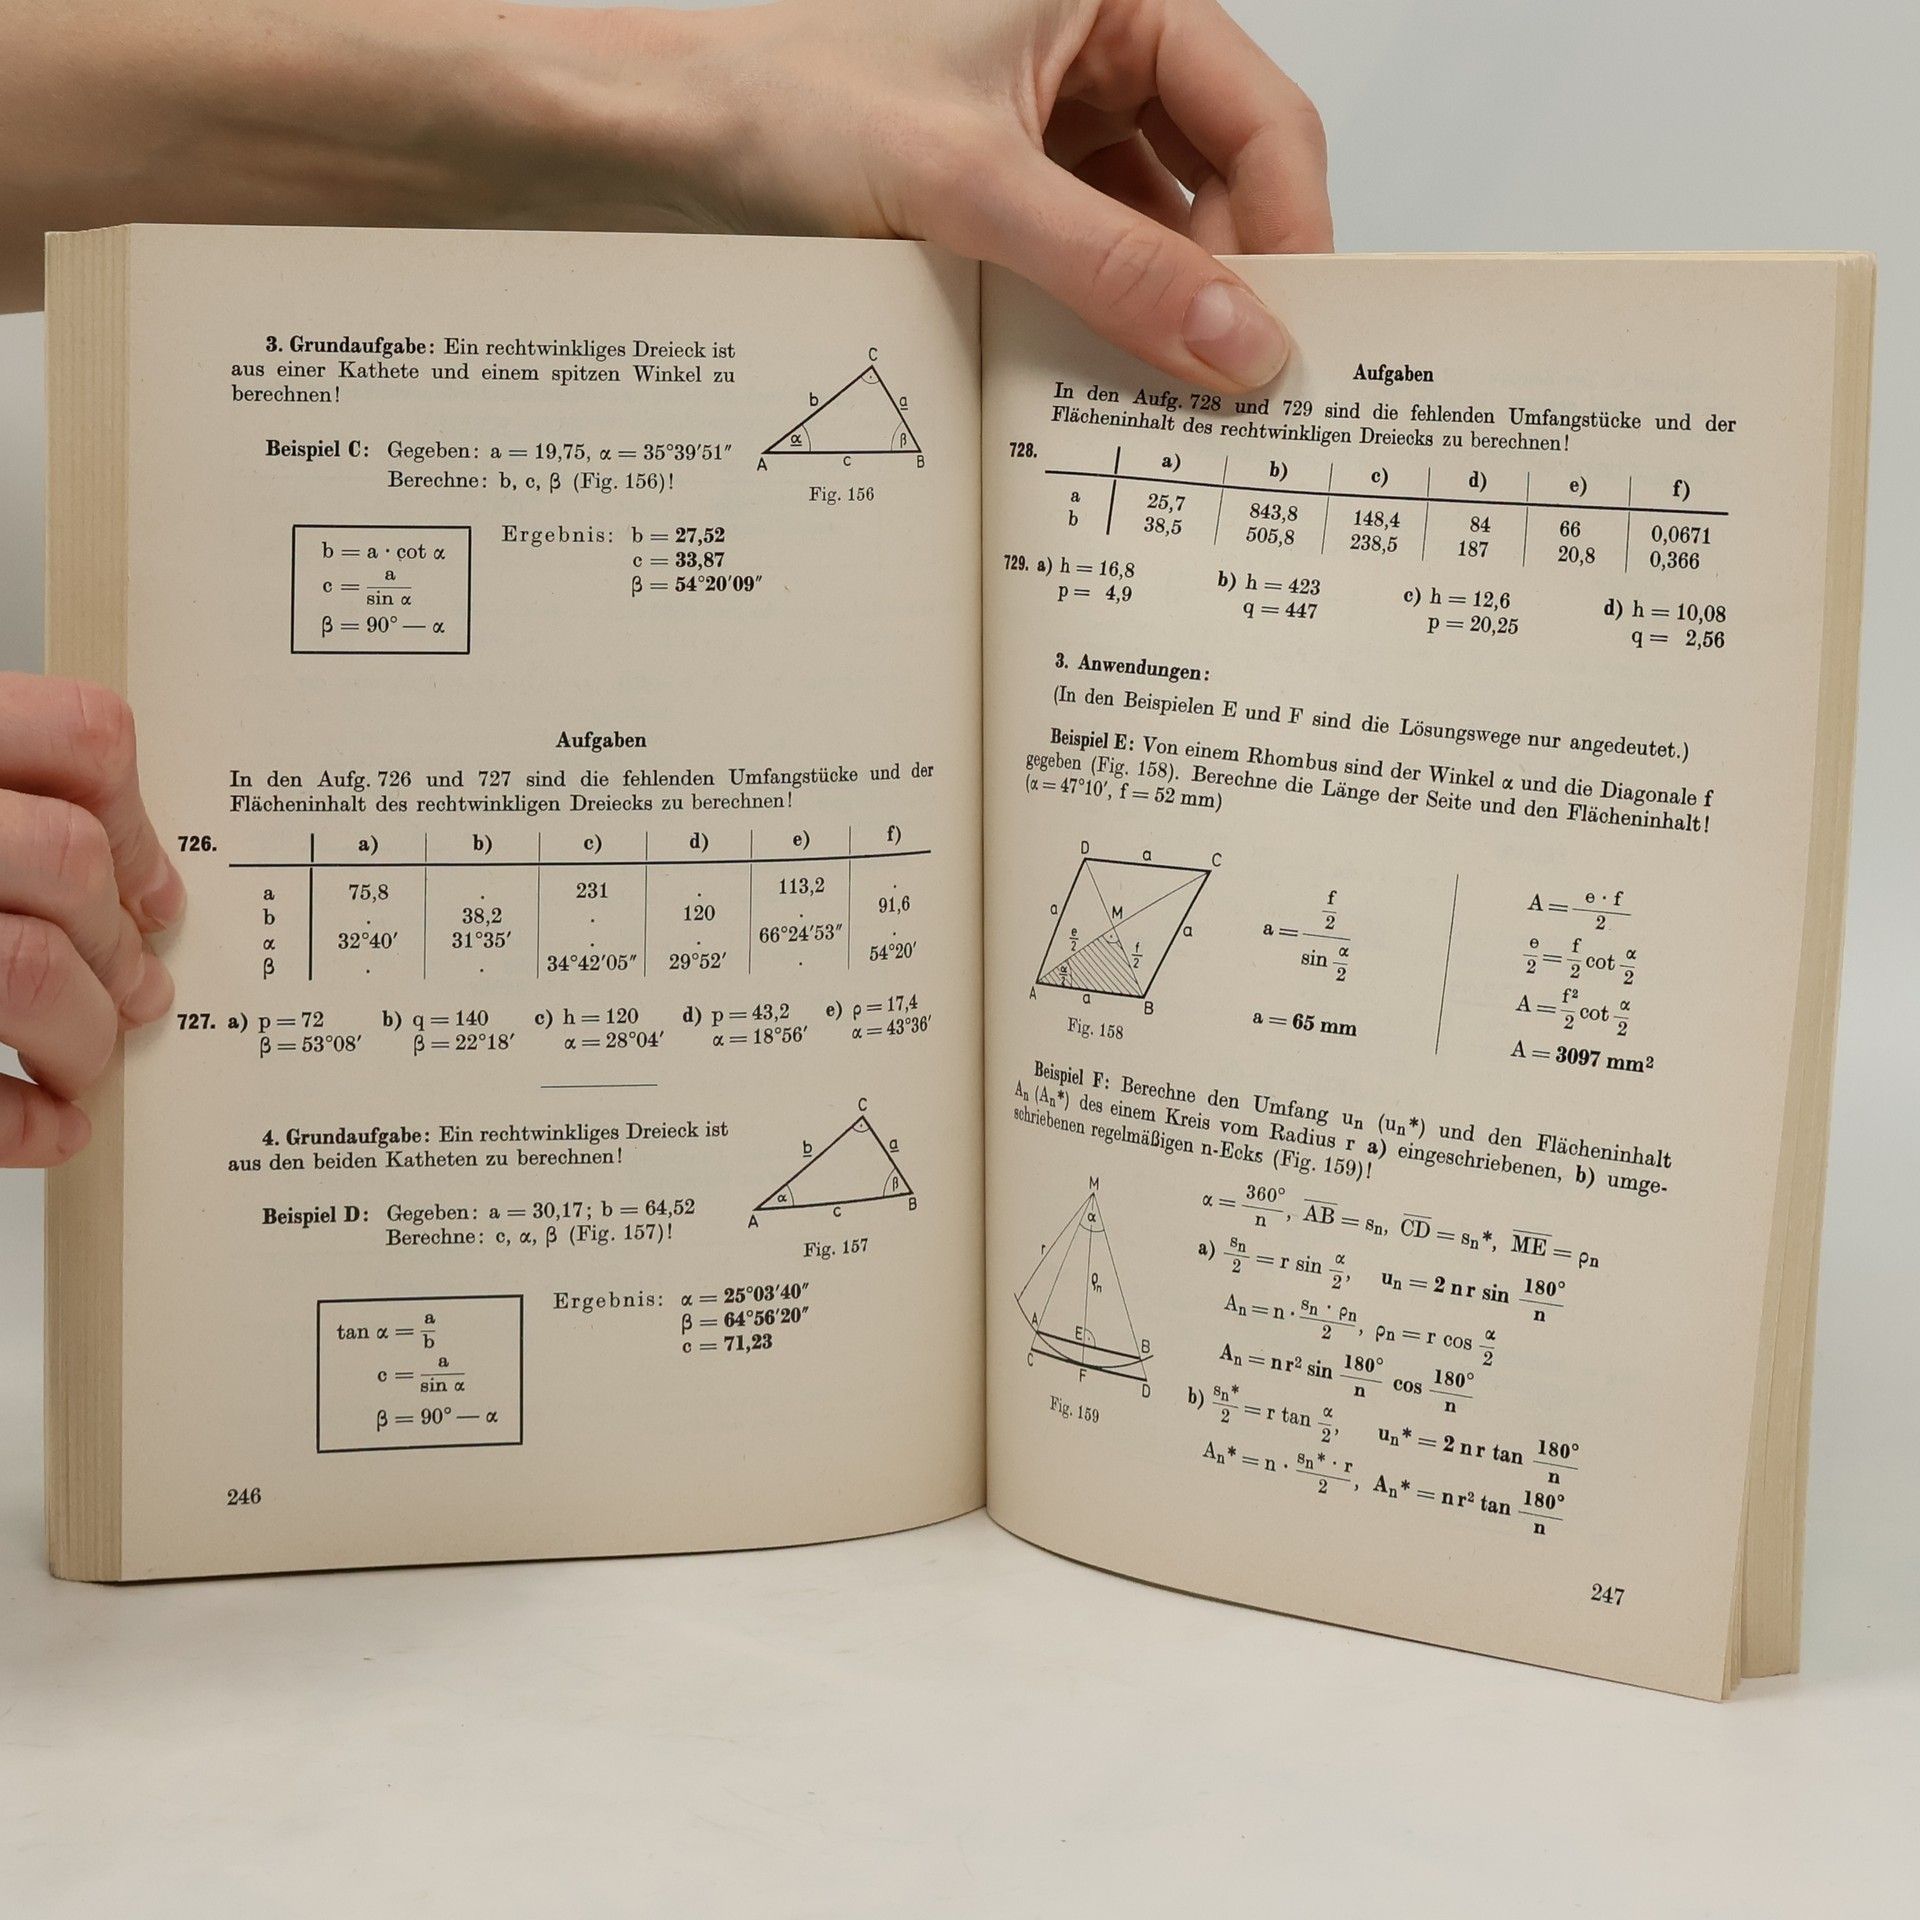 3. Grundaufgabe: Ein rechtwinkliges Dreieck ist
aus einer Kathete und einem spitzen Winkel zu
berechnen!
C
b a
α β
A c B
Fig. 156
Beispiel C: Gegeben: a = 19,75, α = 35°39′51″
Berechne: b, c, β (Fig. 156)!
b = a · cot α
c = a / sin α
β = 90° — α
Ergebnis: b = 27,52
c = 33,87
β = 54°20′09″
Aufgaben
In den Aufg. 726 und 727 sind die fehlenden Umfangstücke und der
Flächeninhalt des rechtwinkligen Dreiecks zu berechnen!
726. a) b) c) d) e) f)
a 75,8 . 231 . 113,2 .
b . 38,2 . 120 . 91,6
α 32°40′ 31°35′ . . 66°24′53″ .
β . . 34°42′05″ 29°52′ . 54°20′
727. a) p = 72 b) q = 140 c) h = 120 d) p = 43,2 e) ρ = 17,4
β = 53°08′ β = 22°18′ α = 28°04′ α = 18°56′ α = 43°36′
4. Grundaufgabe: Ein rechtwinkliges Dreieck ist
aus den beiden Katheten zu berechnen!
C
b a
α β
A c B
Fig. 157
Beispiel D: Gegeben: a = 30,17; b = 64,52
Berechne: c, α, β (Fig. 157)!
tan α = a / b
c = a / sin α
β = 90° — α
Ergebnis: α = 25°03′40″
β = 64°56′20″
c = 71,23
246
Aufgaben
In den Aufg. 728 und 729 sind die fehlenden Umfangstücke und der
Flächeninhalt des rechtwinkligen Dreiecks zu berechnen!
728. a) b) c) d) e) f)
a 25,7 843,8 148,4 84 66 0,0671
b 38,5 505,8 238,5 187 20,8 0,366
729. a) h = 16,8 b) h = 423 c) h = 12,6 d) h = 10,08
p = 4,9 q = 447 p = 20,25 q = 2,56
3. Anwendungen:
(In den Beispielen E und F sind die Lösungswege nur angedeutet.)
Beispiel E: Von einem Rhombus sind der Winkel α und die Diagonale f
gegeben (Fig. 158). Berechne die Länge der Seite und den Flächeninhalt!
(α = 47°10′, f = 52 mm)
D a C
a M a
e/2 f/2
α/2
A a B
Fig. 158
a = (f/2) / (sin α/2)
a = 65 mm
A = e · f / 2
e/2 = f/2 cot α/2
A = f²/2 cot α/2
A = 3097 mm²
Beispiel F: Berechne den Umfang uₙ (uₙ*) und den Flächeninhalt
Aₙ (Aₙ*) des einem Kreis vom Radius r a) eingeschriebenen, b) umge-
schriebenen regelmäßigen n-Ecks (Fig. 159)!
M
α
r ρₙ
A E B
C F D
Fig. 159
α = 360°/n, AB = sₙ, CD = sₙ*, ME = ρₙ
a) sₙ/2 = r sin α/2, uₙ = 2 n r sin 180°/n
Aₙ = n · sₙ · ρₙ / 2, ρₙ = r cos α/2
Aₙ = n r² sin 180°/n cos 180°/n
b) sₙ*/2 = r tan α/2, uₙ* = 2 n r tan 180°/n
Aₙ* = n · sₙ* · r / 2, Aₙ* = n r² tan 180°/n
247